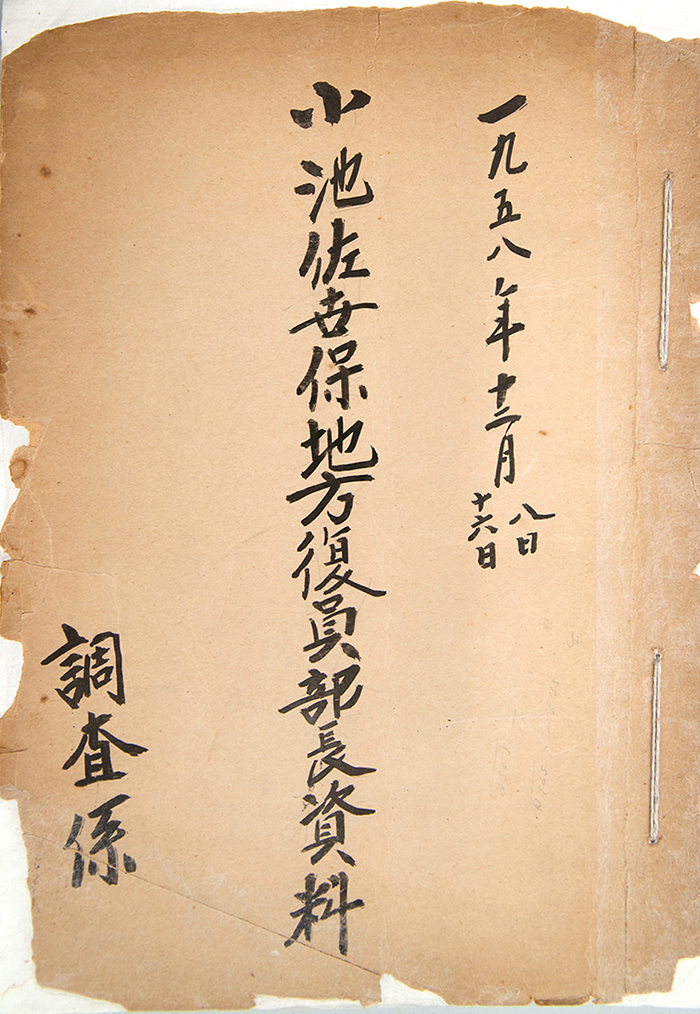 一九五八年十二月八日
十六日
小池佐世保地方復員部長資料
調査係